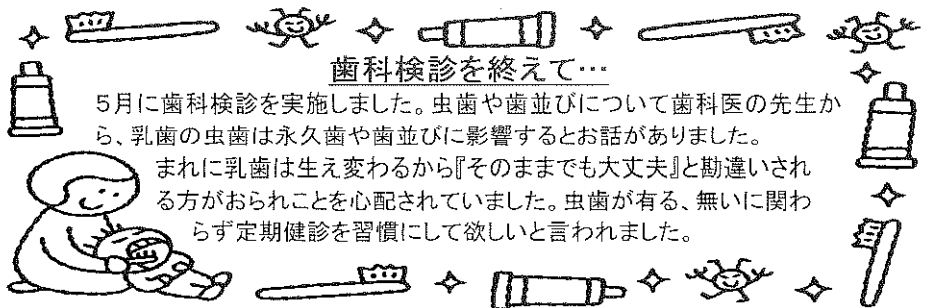 歯科検診を終えて…
5月に歯科検診を実施しました。虫歯や歯並びについて歯科医の先生か
ら、乳歯の虫歯は永久歯や歯並びに影響するとお話がありました。
まれに乳歯は生え変わるから『そのままでも大丈夫』と勘違いされ
る方がおられことを心配されていました。虫歯が有る、無いに関わ
らず定期健診を習慣にして欲しいと言われました。